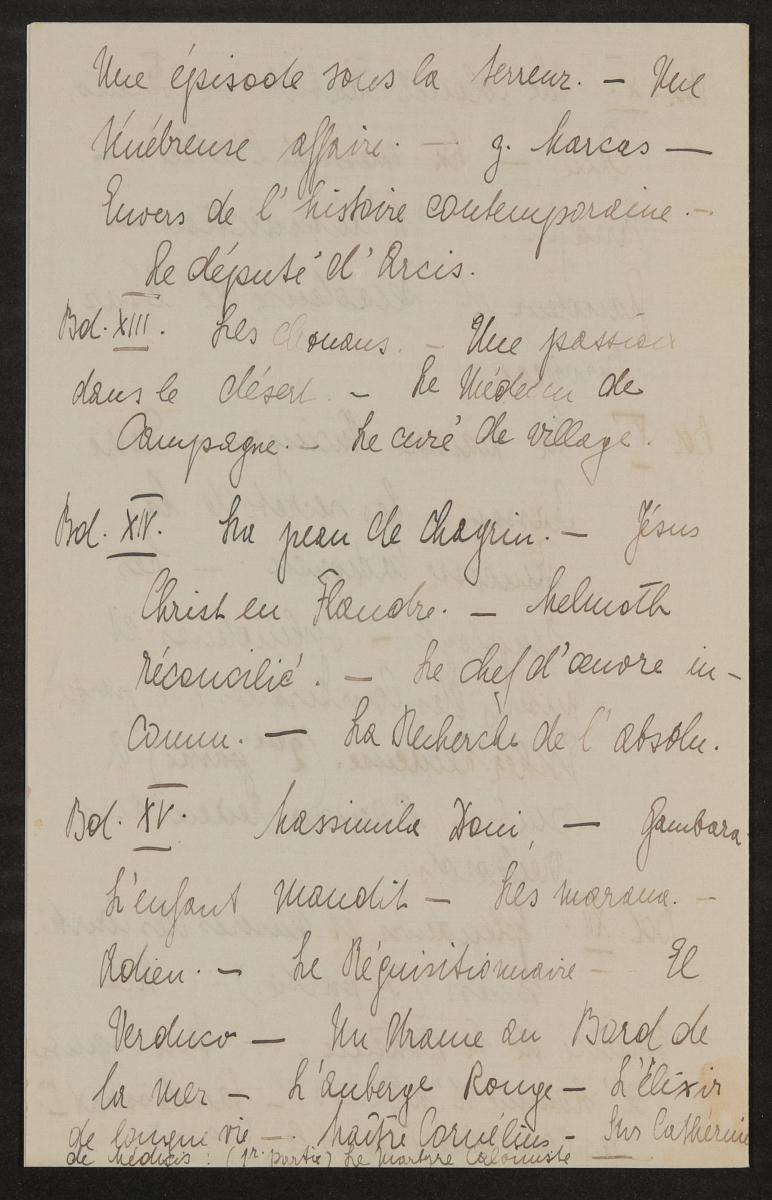 Une épisode sous la terreur. — Une
ténébreuse affaire. — g. Marcas —
Envers de l'histoire contemporaine. —
Le député d'Arcis.
Bd. XIII. Les chouans. — Une passion
dans le désert. — Le Médecin de
Campagne. — Le curé de village.
Bd. XIV. La peau de chagrin. — Jésus
Christ en Flandre. — Melmoth
réconcilié. — Le chef d'œuvre in-
connu. — La Recherche de l'absolu.
Bd. XV. Massimila Doni — Gambara
L'enfant Maudit — Les marana. —
Adieu. — Le Réquisitionnaire — El
Verduco — Un Drame au Bord de
la mer — L'auberge Rouge — L'Élixir
de longue vie —. Maître Cornélius — Sur Cathérine
de Médicis : (1r. partie) Le Martyre Calviniste —